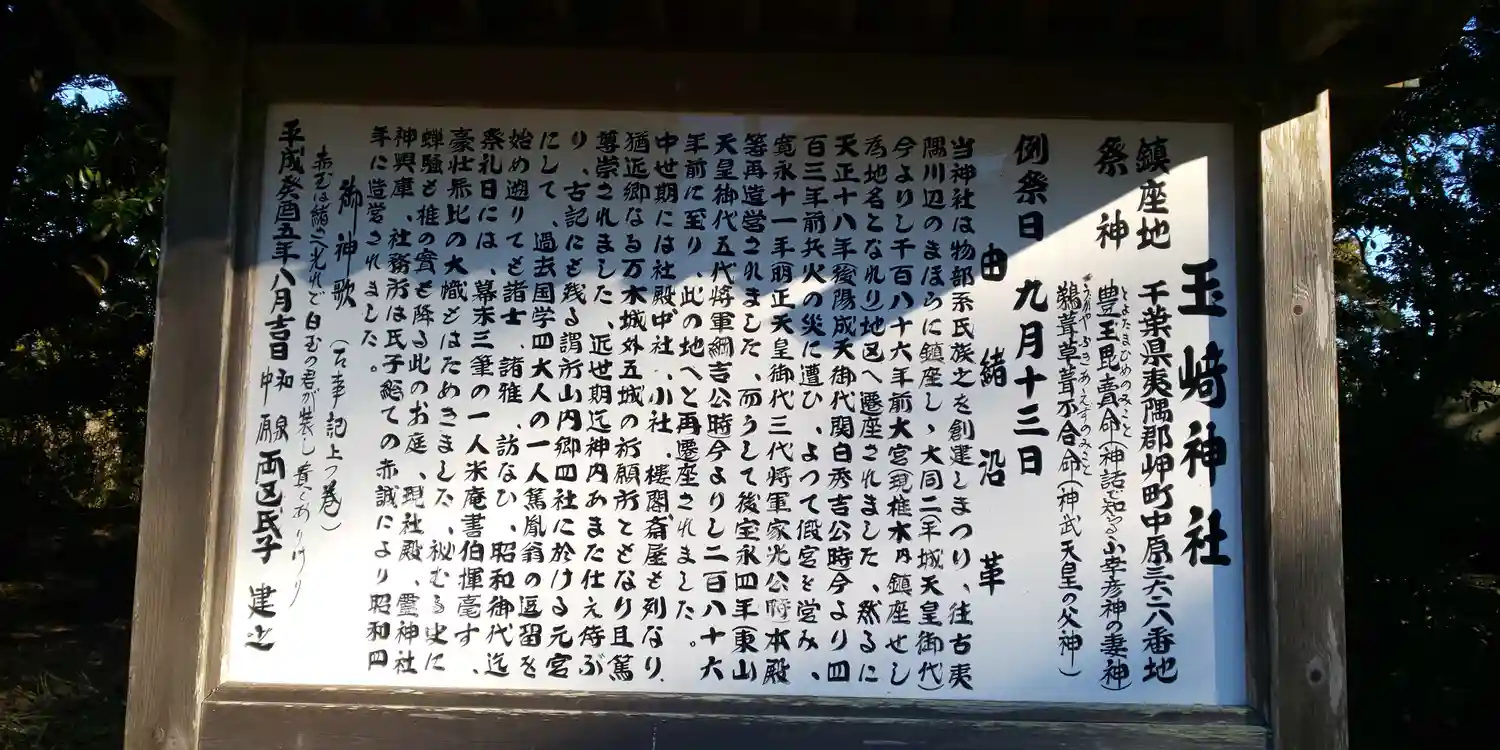 玉﨑神社
鎮座地　千葉県夷隅郡岬町中原三六二六番地
祭神　豊玉毘賣命(神話で知る山幸彦神の妻神)
とよたまびめのみこと
鵜葺草葺不合命(神武天皇の父神)
うがやふきあえずのみこと
例祭日　九月十三日
由緒沿革
当神社は物部系氏族之を創建しまつり、往古夷
隅川辺のまほらに鎮座し、大同二年(平城天皇御代)
今よりし千百八十六年前大宮(現椎木内鎮座せし
為地名となれり)地区へ遷座されました、然るに
天正十八年後陽成天御代関白秀吉公時今より四
百三年前兵火の災に遭ひ、よつて假宮を営み、
寛永十一年明正天皇御代三代将軍家光公時本殿
等再造営されました、而うして後宝永四年(東山
天皇御代五代将軍綱吉公時)今よりし二百八十六
年前に至り、此の地へと再遷座されました。
中世期には社殿、中社、小社、樓閣斎屋も列なり
猶近郷なる万木城外五城の祈願所ともなり且篤
尊崇されました、近世期迄神内あまた仕え侍ぶ
り、古記にも残る謂所山内郷四社に於ける元宮
にして、過去国学四大人の一人篤胤翁の逗留を
始め遡りても諸士、諸雅、訪なひ、昭和御代迄
祭礼日には、幕末三筆の一人米庵書伯揮毫す、
豪壮無比の大幟どはためきました、秘むる史に
蝉騒も椎の實も降る此のお庭、現社殿、靈神社
神興庫、社務所は氏子総ての赤誠により昭和四
年に造営されました。
御神歌　(古事記上つ巻)
赤玉は緒さへ光れど白玉の君が装し貴くありけり
平成癸酉五年八月吉日　和泉　中原　両区氏子　建之